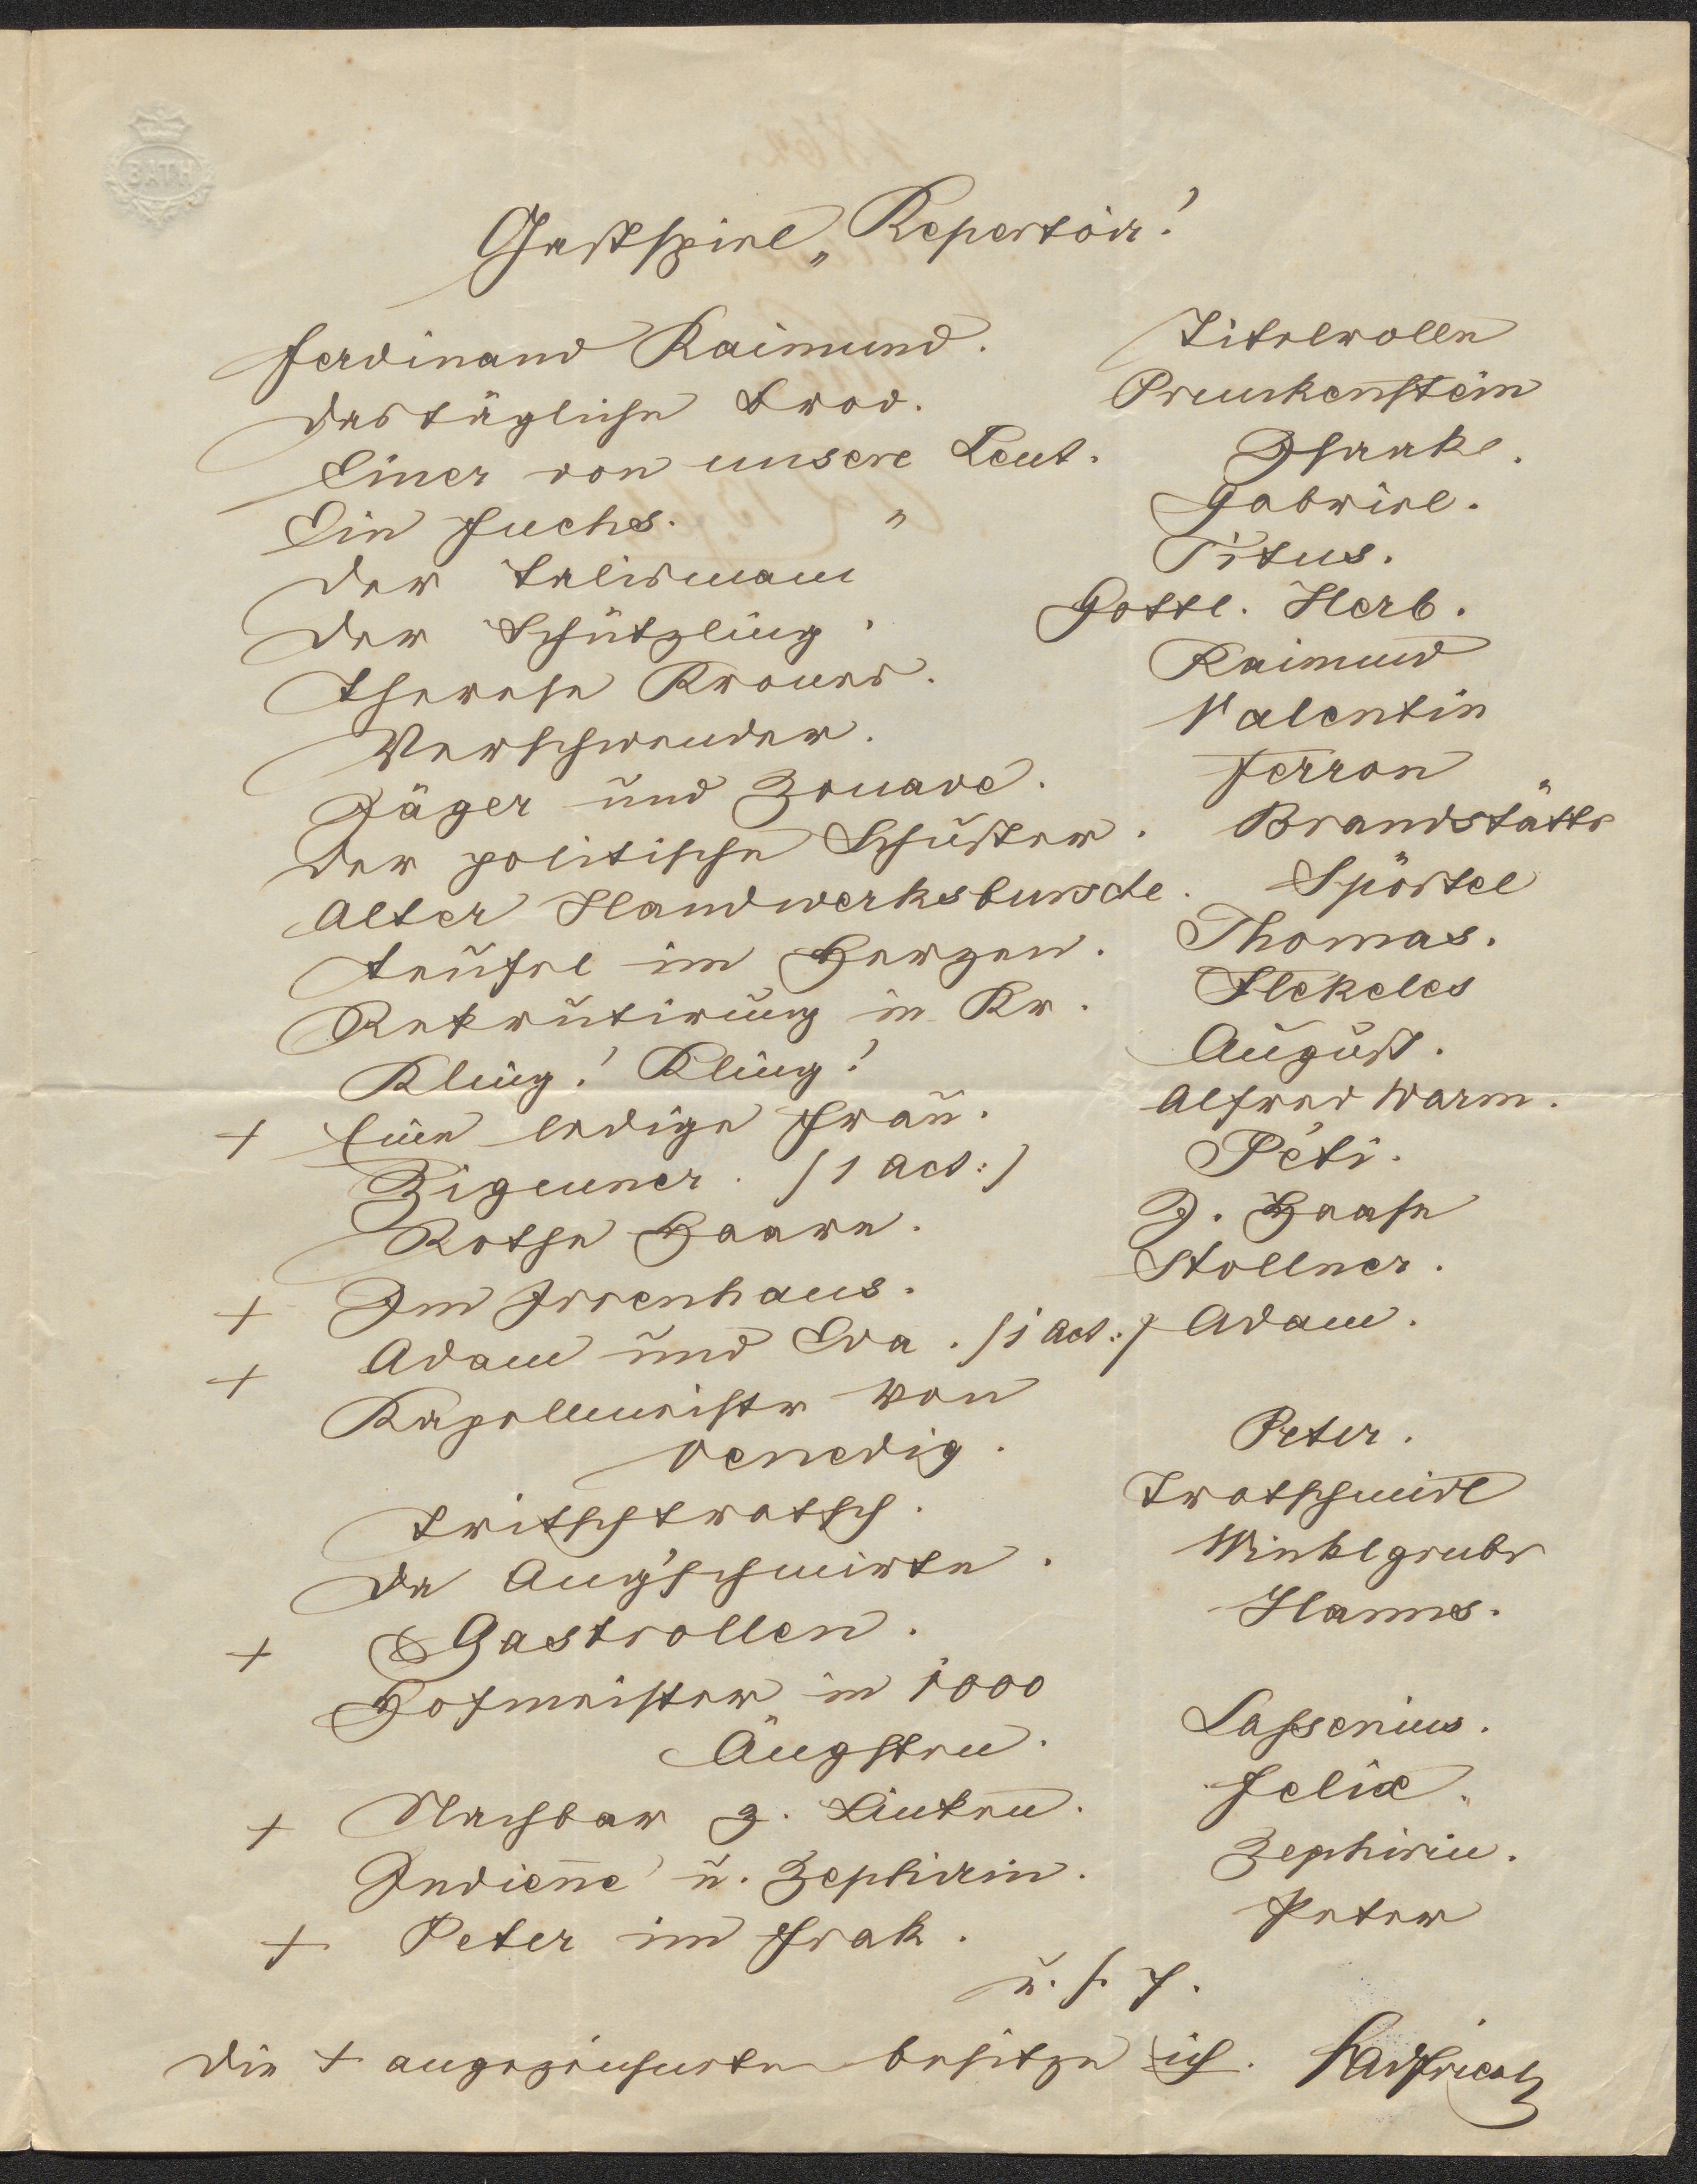 BATH
Gastspiel „ Repertoir!
Ferdinand Raimund. Titelrolle
Das tägliche Brod. Prunkenstein
Einer von unsere Leut. Isaak.
Ein Fuchs. " Gabriel.
Der Talisman Titus.
Der Schützling. Gottl. Herb.
Therese Krones. Raimund
Verschwender. Valentin
Jäger und Zouave. Ferron
Der politische Schuster. Brandstätter
Alter Handwerksbursche. Spörtel
Teufel im Herzen. Thomas.
Rekrutirung in Kr. Flekeles
Kling! Kling! August.
+ Eine ledige Frau. Alfred Warm.
Zigeuner. /: 1 Act :/ Peti.
Rothe Haare. J. Haase
+ Im Irrenhaus. Stollner.
+ Adam und Eva. /: 1 Act :/ Adam.
Kapellmeister von
Venedig. Peter.
Tritschtratsch. Tratschmidl
De Ang'schmirte. Winklgruber
+ Gastrollen. Hanns.
Hofmeister in 1000
Ängsten. Lassenius.
+ Nachbar z. Linken. Felix.
Indienne u. Zephirin. Zephirin.
+ Peter im Frak. Peter
u. s. f.
Die + angezeichneten besitze ich.